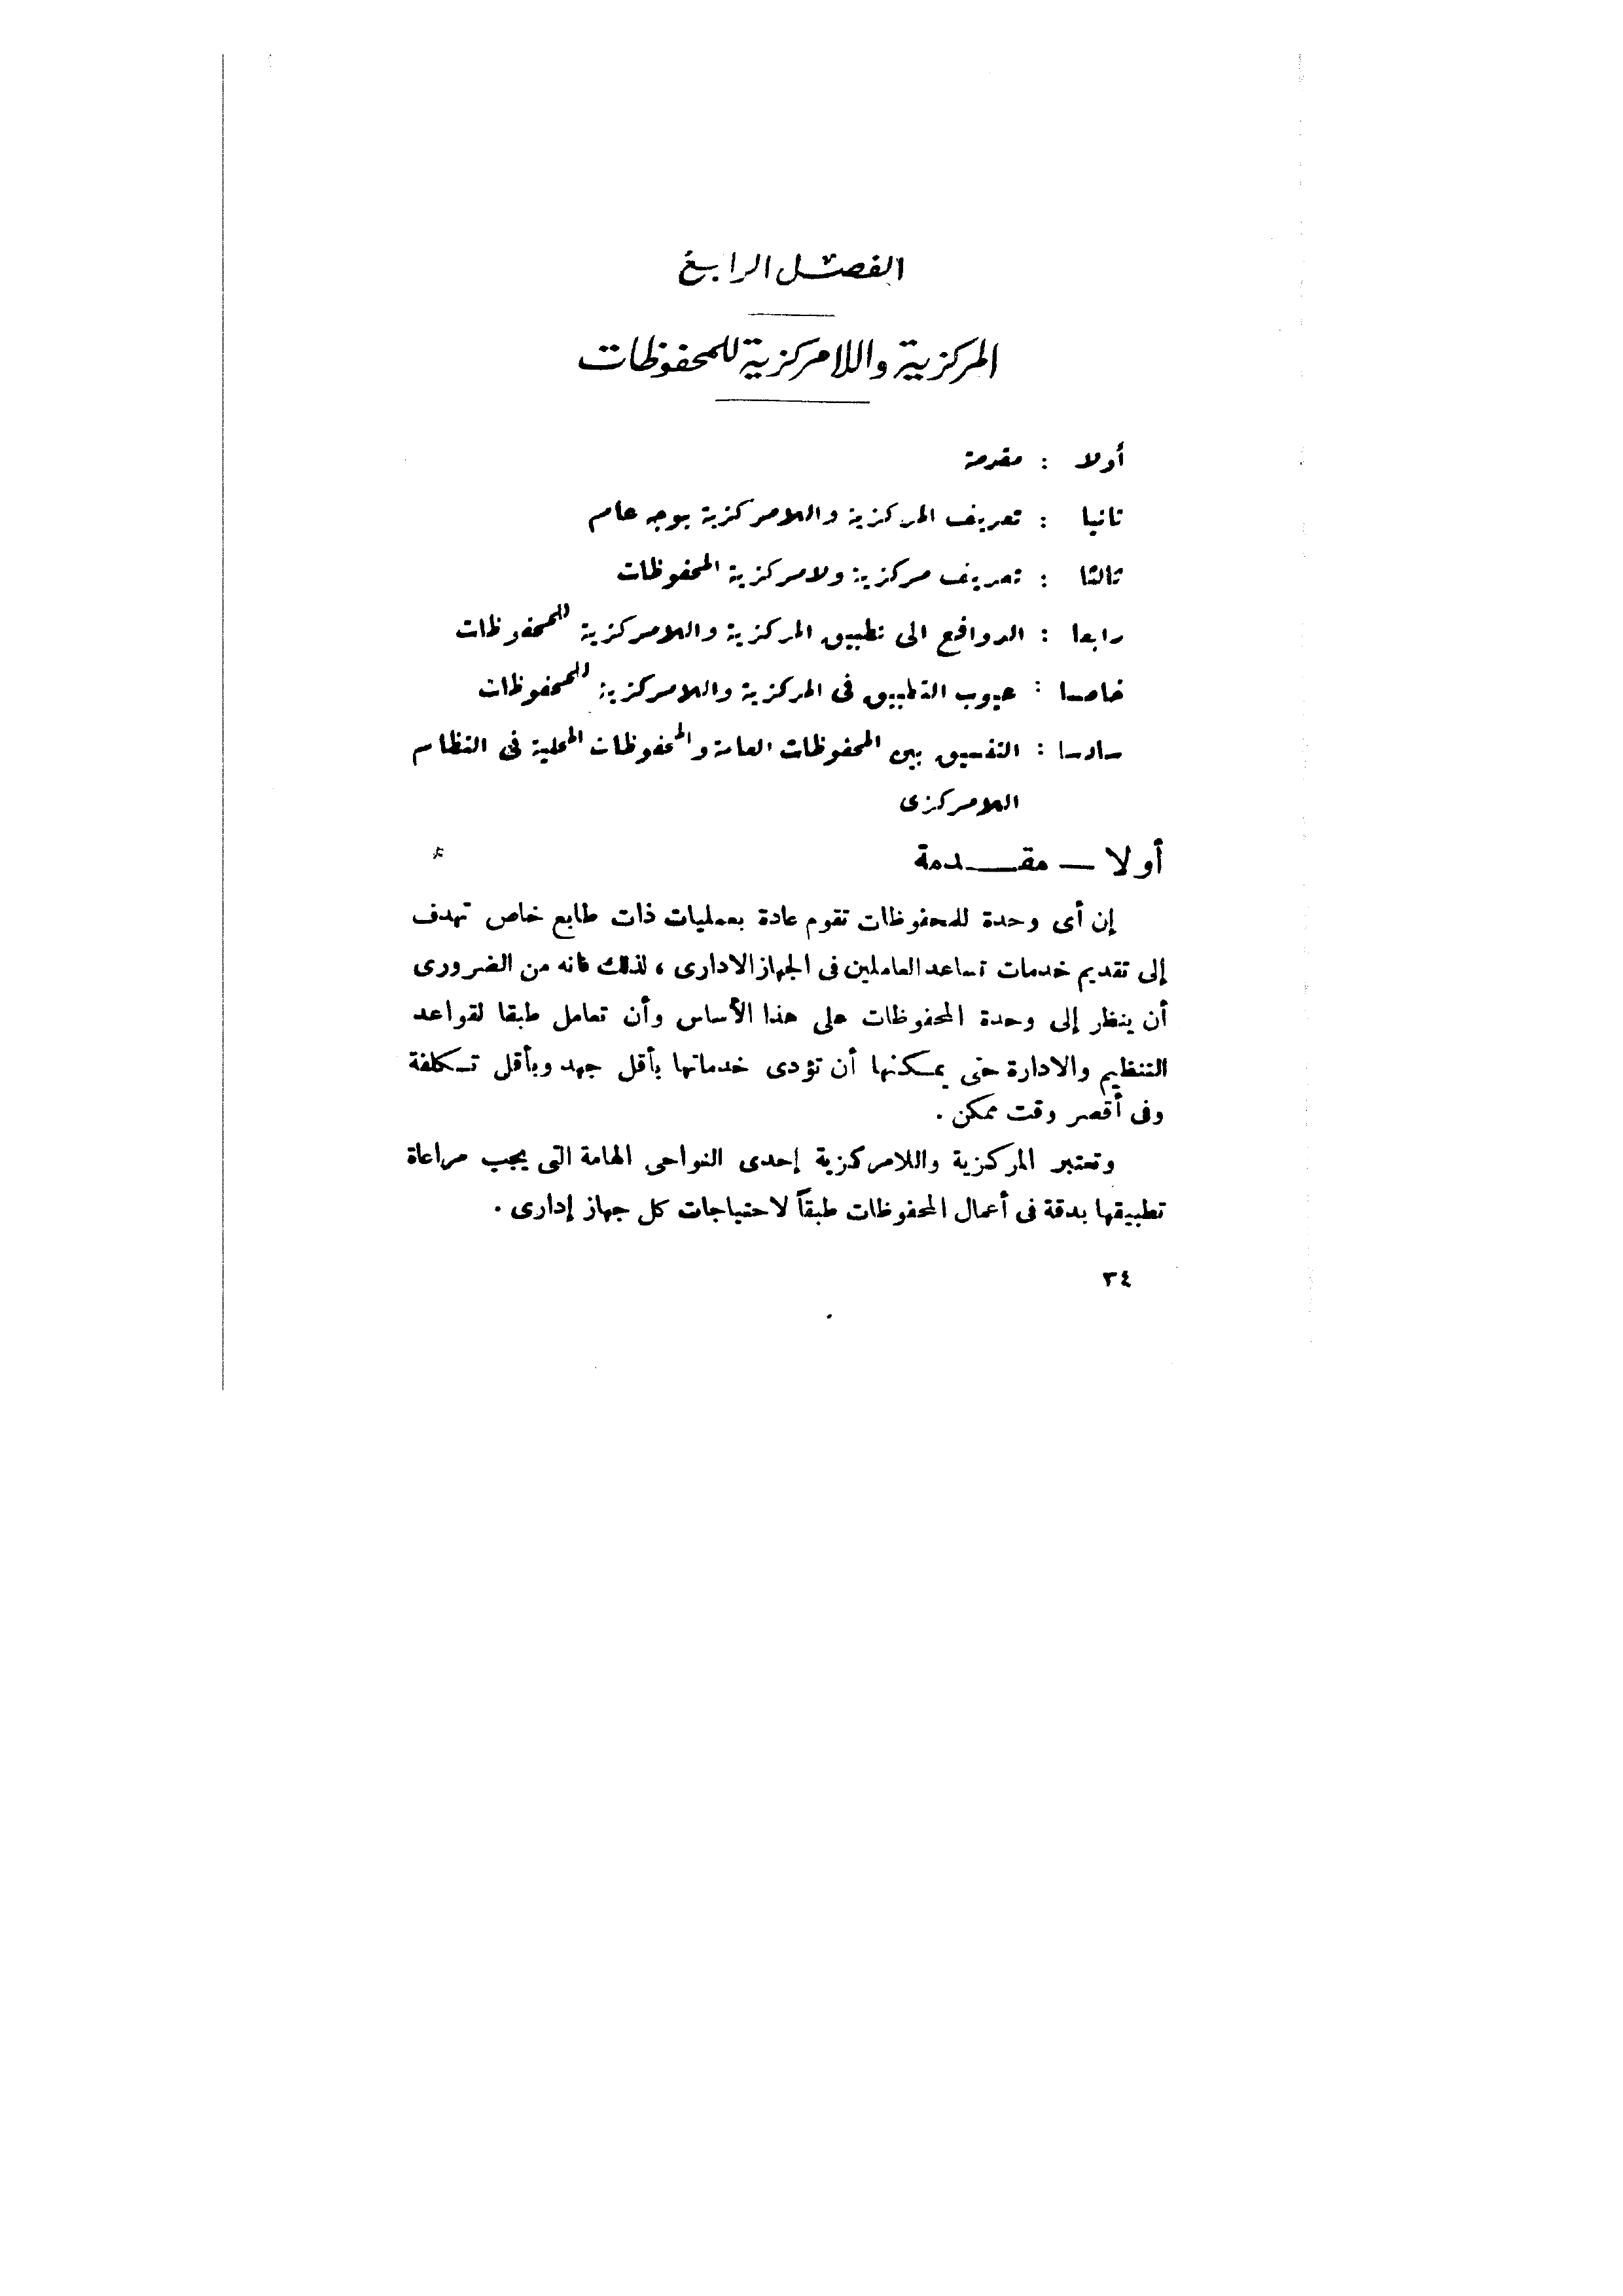 الفصل الرابع
المركزية واللامركزية للمحفوظات
أولا : مقدمة
ثانيا : تعريف المركزية واللامركزية بوجه عام
ثالثا : تعريف مركزية ولامركزية المحفوظات
رابعا : الدوافع الى تطبيق المركزية واللامركزية للمحفوظات
خامسا : عيوب التطبيق فى المركزية واللامركزية للمحفوظات
سادسا : التنسيق بين المحفوظات العامة والمحفوظات المحلية فى النظام
اللامركزى
أولا — مقـــدمة
إن أى وحدة للمحفوظات تقوم عادة بعمليات ذات طابع خاص تهدف
إلى تقديم خدمات تساعد العاملين فى الجهاز الادارى ، لذلك فانه من الضرورى
أن ينظر إلى وحدة المحفوظات على هذا الأساس وأن تعامل طبقا لقواعد
التنظيم والادارة حتى يمـكنها أن تؤدى خدماتها بأقل جهد وبأقل تـكلفة
وفى أقصر وقت ممكن .
وتعتبر المركزية واللامركزية إحدى النواحى الهامة التى يجب مراعاة
تطبيقها بدقة فى أعمال المحفوظات طبقاً لاحتياجات كل جهاز إدارى .
٣٤